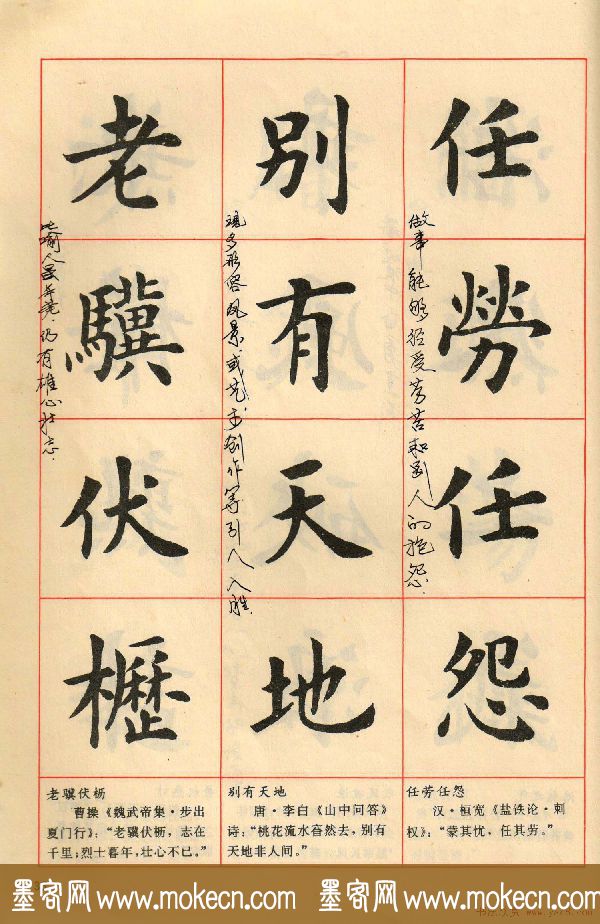 任勞任怨
做事能够经受劳苦和别人的抱怨.
别有天地
现多形容风景或艺术创作等引人入胜.
老驥伏櫪
比喻人虽年老.仍有雄心壮志.
任劳任怨
汉·桓宽《盐铁论·刺
权》：“蒙其忧，任其劳。”
别有天地
唐·李白《山中问答》
诗：“桃花流水杳然去，别有
天地非人间。”
老骥伏枥
曹操《魏武帝集·步出
夏门行》：“老骥伏枥，志在
千里；烈士暮年，壮心不已。”
墨客网 www.mokecn.com 墨客网 www.mokecn.com